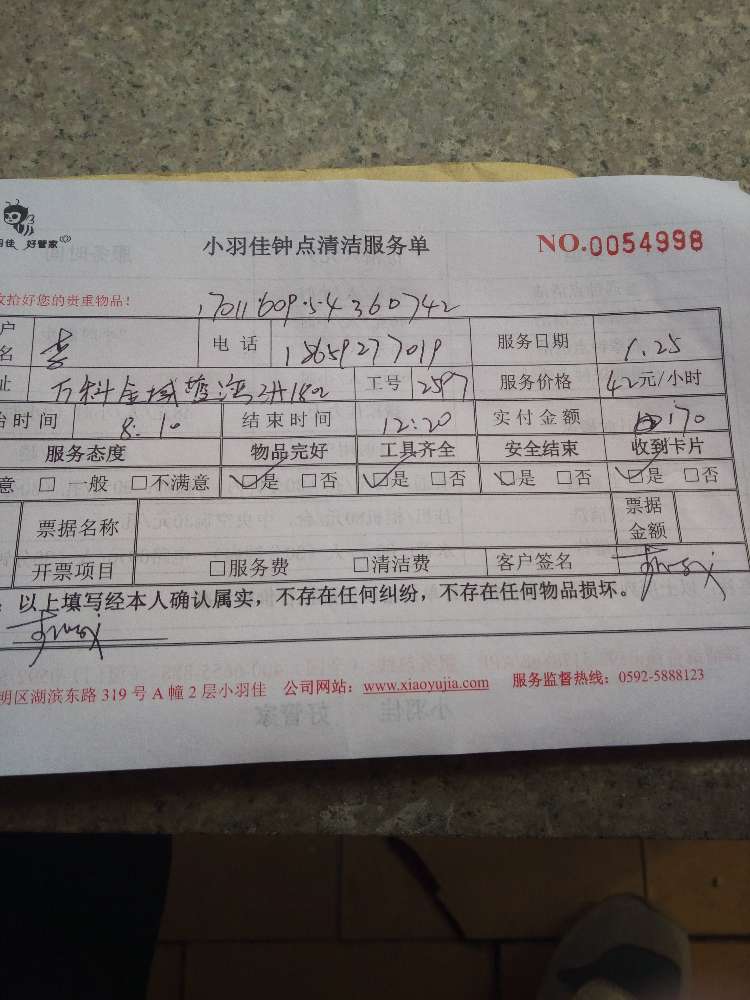 羽佳 好管家
小羽佳钟点清洁服务单 NO.0054998
收拾好您的贵重物品!
1701160954360742
户名 李 电话 18659277019 服务日期 1.25
址 万科金域蓝湾 1802 工号 2597 服务价格 42元/小时
始时间 8:10 结束时间 12:20 实付金额 170
服务态度 物品完好 工具齐全 安全结束 收到卡片
意 □一般 □不满意 □是 □否 □是 □否 □是 □否 □是 □否
票据名称 票据金额
开票项目 □服务费 □清洁费 客户签名
：以上填写经本人确认属实，不存在任何纠纷，不存在任何物品损坏。
明区湖滨东路 319 号 A 幢 2 层小羽佳 公司网站：www.xiaoyujia.com 服务监督热线：0592-5888123